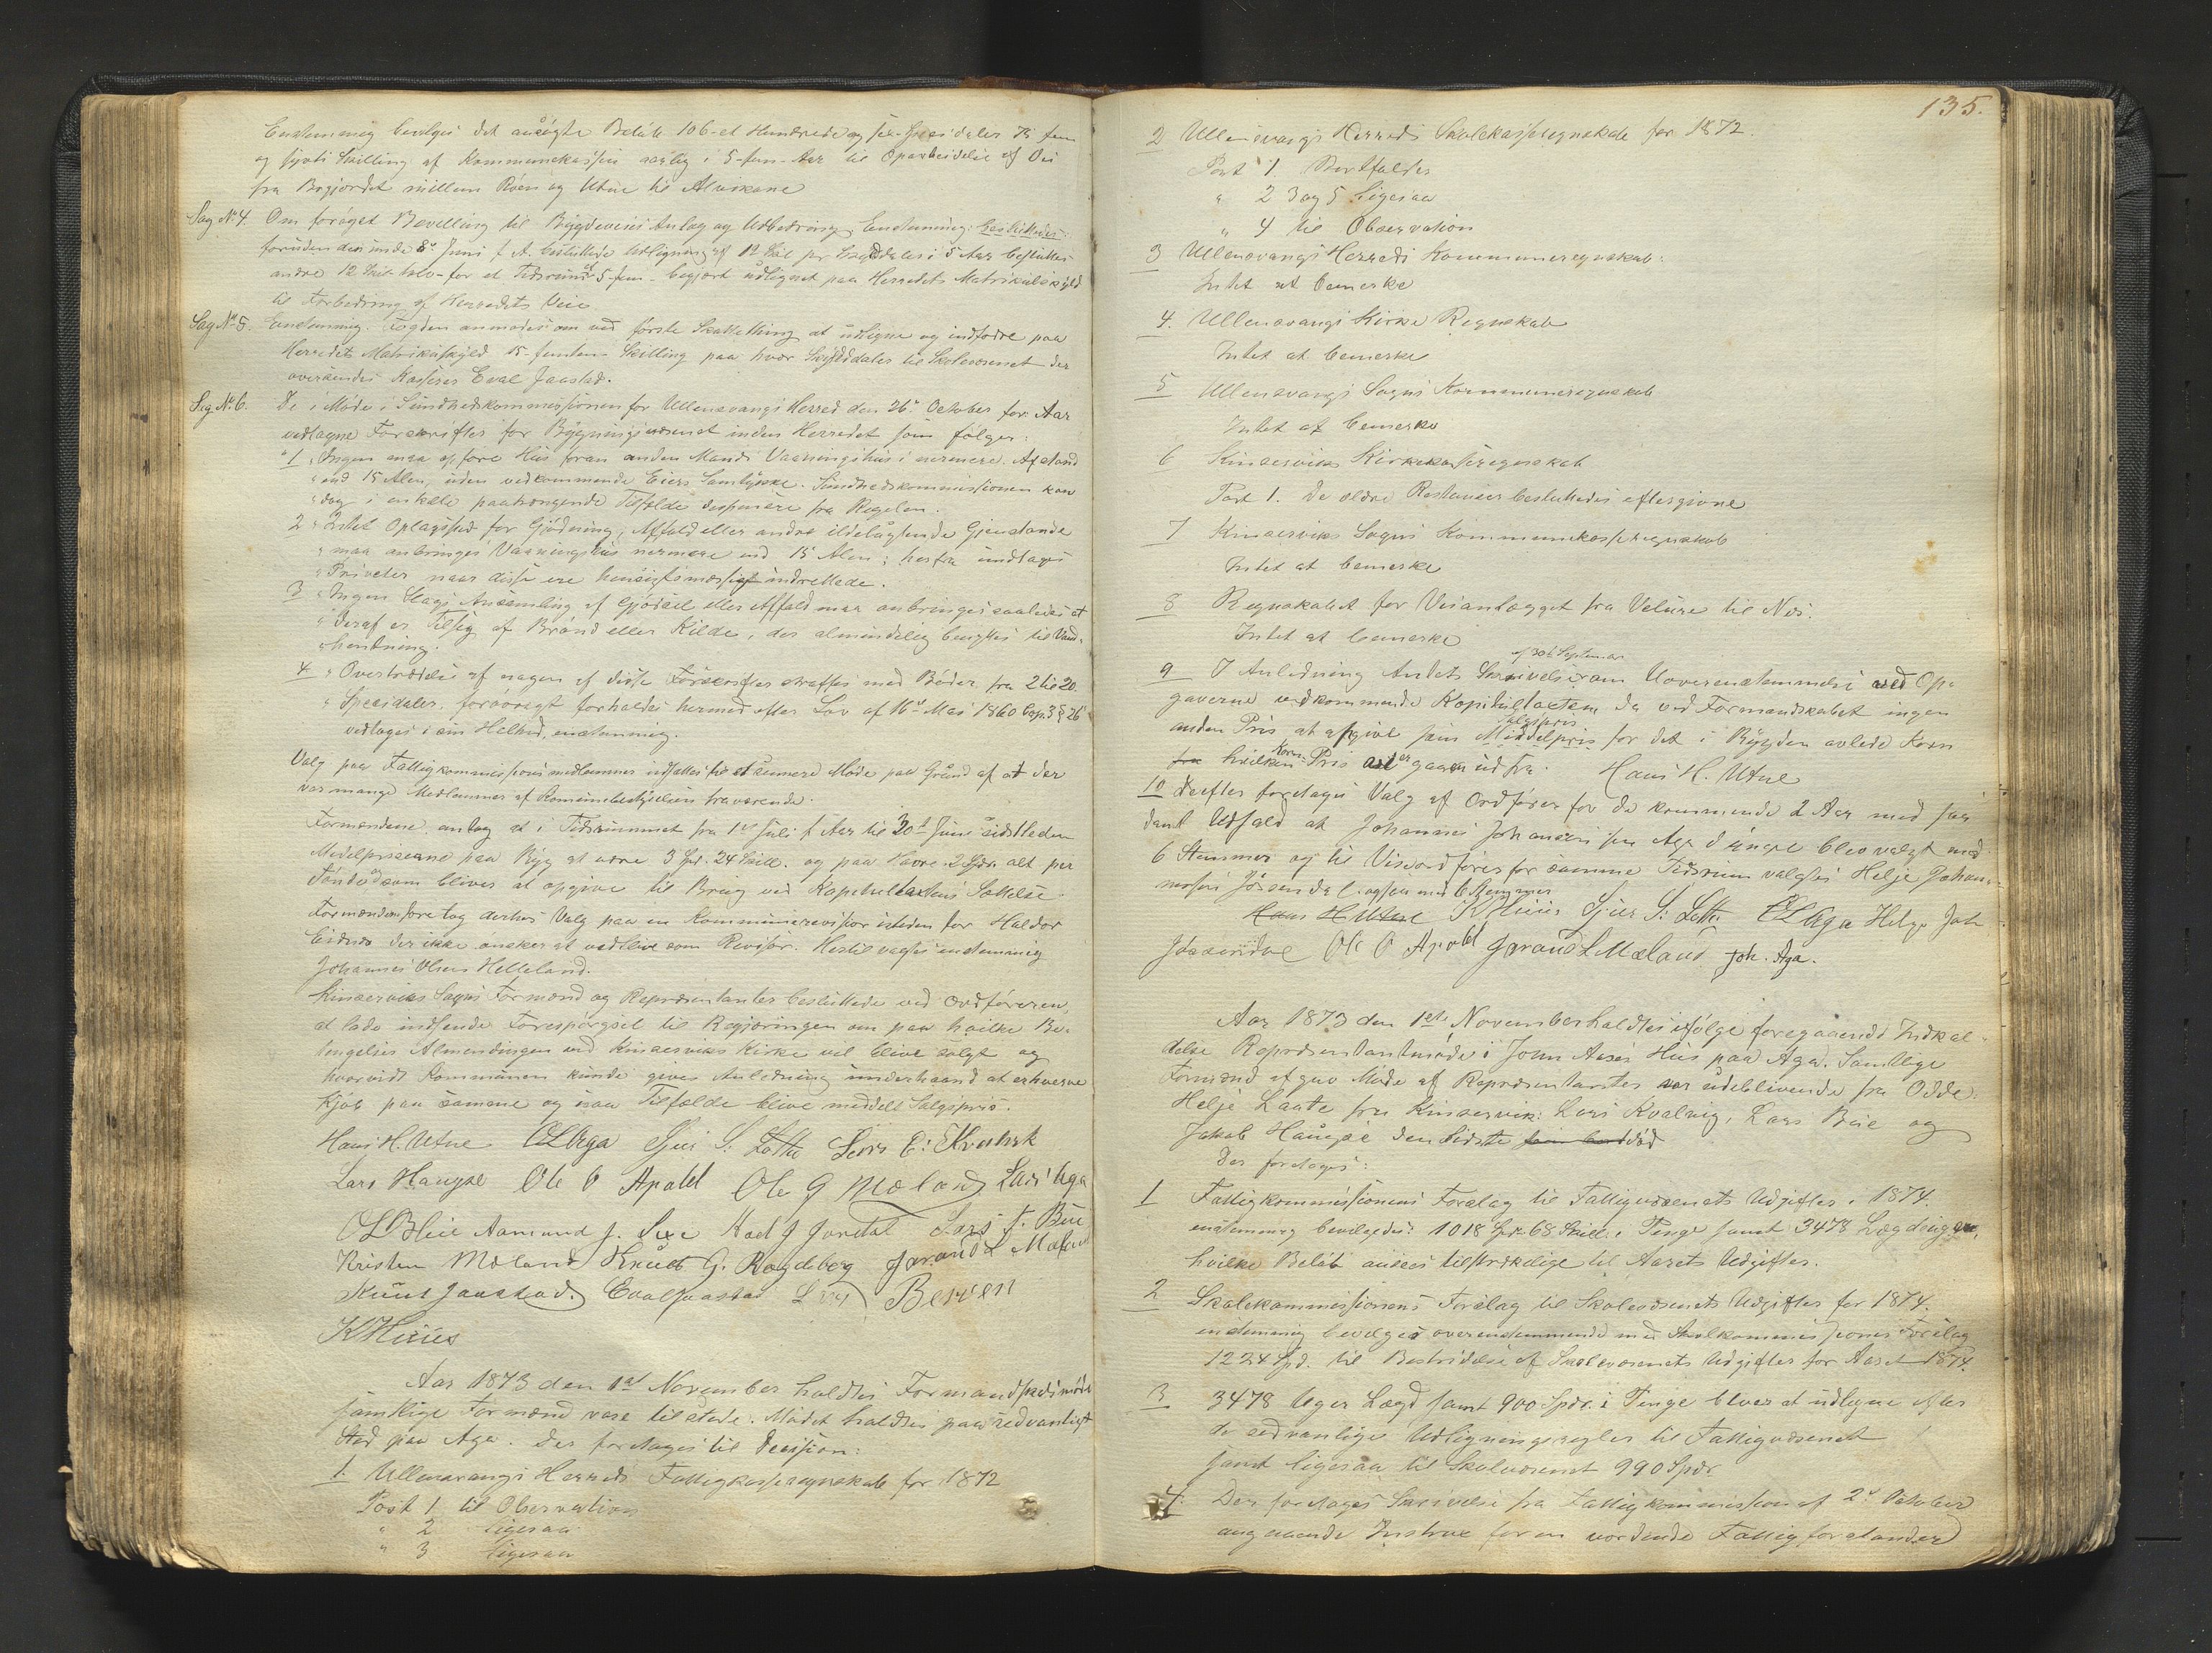 Enstemmig bevilges det ansøgte Beløb 106-et Hundrede og sex Specidaler 75 fem
og sjøti Skilling af Kommunekassen aarlig i 5-fem-Aar til Oparbeidelse af Vei
fra Bregjordet millem Roen og Utne til Alvikane
Sag No 4. Om forøget Bevilling til Bygdeveies Anlæg og Udbedring. Enstemmig besluttedes:
foruden den under 8de Juni f. A. besluttede Udligning af 12 Skil per Skylddaler i 5 Aar besluttes
andre 12 Skil tolv for et Tidsrum af 5-fem- begjært udlignet paa Herredets Matrikulskyld
til Forbedring af Herredets Veie
Sag No 5. Enstemmig. Fogden anmodes om ved første Skattething at udligne og indfodre paa
Herredets Matrikulskyld 15-femten Skilling paa hver Skylddaler til Skolevæsenet der
oversendes Kasserer Eval Jaastad.
Sag No 6. De i Møde i Sundhedskommissionen for Ullensvangs Herred den 26de October for. Aar
vedtagne Forskrifter for Bygningsvæsenet inden Herredet som følger:
"1 "Ingen maa opføre Hus foran anden Mands Vaaningshus i nærmere Afstand
"end 15 Alen, uden vedkommende Eiers Samtykke. Sundhedskommissionen kan
"dog i enkelte paatrængende Tilfælde dispensere fra Regelen.
2 "Intet Oplagssted for Gjødning, Affald eller andre ildelugtende Gjenstande
"maa anbringes Vaaningshus nærmere end 15 Alen; herfra undtages
"Priveter naar disse ere hensigtsmæssigt indrettede.
3 "Ingen Slags Ansamling af Gjødsel eller Affald maa anbringes saaledes at
"deraf er Tilsig af Brønd eller Kilde, der almindelig benyttes til Vand-
"hentning.
4 "Overtrædelse af nogen af disse Forskrifter straffes med Bøder fra 2 til 20
"Speciedaler, forøvrigt forholdes hermed efter Lov af 16de Mai 1860 Cap. 3 § 26
vedtoges i sin Helhed, enstemmig.
Valg paa Fattigkommissions medlemmer udsattes til et senere Møde paa Grund af at der
var mange Medlemmer af Kommunebestyrelsen fraværende.
Formændene antog at i Tidsrummet fra 1ste Juli f. Aar til 30te Juni sidstleden
Medelpriserne paa Byg at være 3 Spd. 24 Skill. og paa Havre 2 Spdr alt per
Tønde som bliver at opgive til Brug ved Kapitelstaxtens Sættelse.
Formændene foretog derhos Valg paa en Kommunerevisor isteden for Haldor
Eidnes der ikke ønsker at vedblive som Revisor. Hertil valgtes enstemmig
Johannes Olsen Helleland.
Kinserviks Sogns Formænd og Repræsentanter besluttede ved Ordføreren,
at lade indsende Forespørgsel til Regjeringen om paa hvilke Be-
tingelser Almendingen ved Kinserviks Kirke vil blive solgt og
hvorvidt Kommunen kunde gives Anledning underhaand at erhverve
Kjøb paa samme og i saa Tilfælde blive meddelt Salgspris.
Hans H. Utne OLAga Sjur S. Lothe Lars E: Kvestad
Lars Haugse Ole O Apold Ole G Mæland Lars Aga
OLBleie Aamund J. Sexe Had J Jordal Lars T. Bu
Kristen Mæland Knud G. Ragdeberg Jarand L Mæland
Knut Jaastad. Eval Jaastad Berven
KHuus
Aar 1873 den 1ste November holdtes Formandskabsmøde
samtlige Formænd vare tilstede. Mødet holdtes paa sedvanligt
Sted paa Aga. Der foretoges til Decision:
1. Ullensvangs Herreds Fattigkasseregnskab for 1872
Post 1 til Observation
" 2 ligesaa
" 3 ligesaa
135.
2 Ullensvangs Herreds Skolekasseregnskab for 1872.
Post 1. Bortfalder
" 2 3 og 5 ligesaa
" 4 til Observation
3 Ullensvangs Herreds Kommuneregnskab:
Intet at bemerke
4. Ullensvangs Kirke Regnskab
Intet at bemerke
5 Ullensvangs Sogns Kommuneregnskab
Intet at bemerke
6 Kinserviks Kirkekasseregnskab
Post 1. De ældre Restancer besluttedes eftergivne
7 Kinserviks Sogns Kommunekasseregnskab
Intet at bemerke
8 Regnskabet for Veianlægget fra Velure til Næs.
Intet at bemerke
af 30te September
9 I Anledning Amtets Skrivelse om Uoverenstemmelse ved Op-
gaverne vedkommende Kapitelstaxten da ved Formandskabet ingen
Salgspris
anden Pris at opgive som Middelpris for det i Bygden avlede Korn
fra hvilken Korn-Pris er gaaen ud fra. Hans H. Utne
10 Derefter foretoges Valg af Ordfører for de kommende 2 Aar med saa-
dant Udfald at Johannes Johannessen Aga d yngre blev valgt med
6 Stemmer og til Viseordfører for samme Tidsrum valgtes Helje Johan-
nessen Jøsendal ogsaa med 6 Stemmer
Hans H Utne KHuus Sjur S: Lothe OLAga Helge Joh
Jøssendal Ole O Apold Jarand L Mæland Joh. Aga.
Aar 1873 den 1ste November holdtes ifølge foregaaende Indkal-
delse Repræsentantmøde i John Aases Hus paa Aga. Samtlige
Formænd afgav Møde af Repræsentanter var udeblivende fra Odde:
Helje Laate fra Kinservik: Lars Kvalvig, Lars Bue og
Jakob Haugse den sidste død
Der foretoges:
1 Fattigkommissionens Forslag til Fattigvæsenets Udgifter i 1874.
enstemmig bevilgedes: 1018 Spd. 68 Skill. i Penge samt 3478 Lægduger,
hvilke Beløb ansees tilstrækkelige til Aarets Udgifter.
2 Skolekommissionens Forslag til Skolevæsenets Udgifter for 1874.
enstemmig bevilges overenstemmende med Skolekommissionens Forslag
1224 Spd. til Bestridelse af Skolevæsenets Udgifter for Aaret 1874.
3 3478 Uger Lægd samt 900 Spdr. i Penge bliver at udligne efter
de sedvanlige Udligningsregler til Fattigvæsenet
samt ligesaa til Skolevæsenet 990 Spdr
4. Der foretoges Skrivelse fra Fattigkommission af 2den Oktober
angaaende Instrux for en vordende Fattigforstander